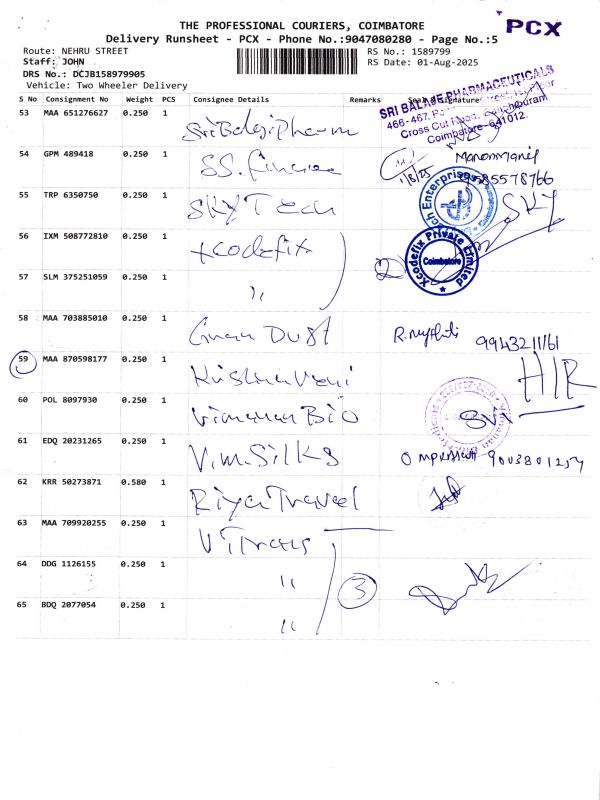 THE PROFESSIONAL COURIERS, COIMBATORE
PCX
Delivery Runsheet - PCX - Phone No.:9047080280 - Page No.:5
Route: NEHRU STREET
RS No.: 1589799
Staff: JOHN
RS Date: 01-Aug-2025
DRS No.: DCJB158979905
Vehicle: Two Wheeler Delivery
S No Consignment No Weight PCS Consignee Details Remarks Seal & Signature
SRI BALAJE PHARMACEUTICALS
466-467,
Cross Cut Road,
Coimbatore-641012.
53 MAA 651276627 0.250 1 Sri Balaji Pharm
54 GPM 489418 0.250 1 SS. Finance
1/8/25
9585578766
55 TRP 6350750 0.250 1 SKY Tech
SKY
Tech Enterprises
Coimbatore
56 IXM 508772810 0.250 1 Xcodefix
2
Xcodefix Private Limited
Coimbatore
57 SLM 375251059 0.250 1 "
58 MAA 703885010 0.250 1 Dust
R.
9943211161
59 MAA 870598177 0.250 1 Krishnaveni
HIR
60 POL 8097930 0.250 1 Vimanan Bio
61 EDQ 20231265 0.250 1 V.M. Silks
9003801254
62 KRR 50273871 0.580 1 Riya Travel
63 MAA 709920255 0.250 1 V Trans
64 DDG 1126155 0.250 1 "
3
65 BDQ 2077054 0.250 1 "